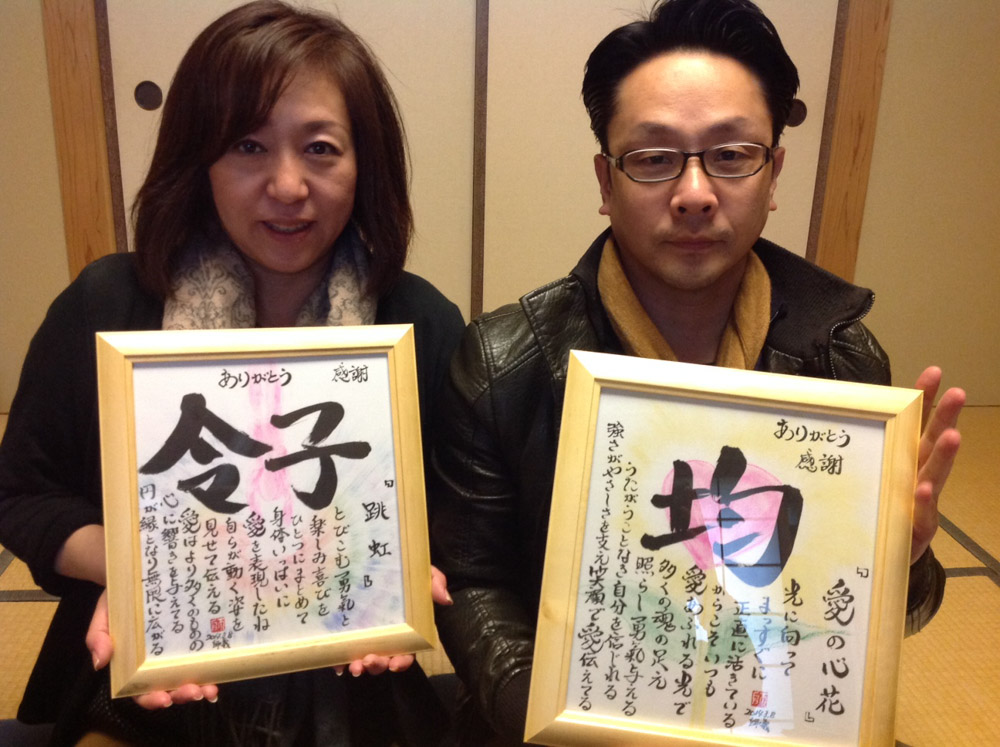 ありがとう
感謝
令子
『跳虹』
とびこむ勇気と
楽しみ喜びを
ひとつにまとめて
身体いっぱいに
愛を表現したね
自らが動く姿を
見せて伝える
愛はより多くのものの
心に響きを与えてる
円が縁となり無限に広がる
ありがとう
感謝
均
『愛の心花』
光に向って
まっすぐに
正直に活きている
だからこそいつも
愛あふれる光で
多くの魂の足元
照らし勇気与える
うたがうことなき自分を信じれる
強さがやさしさを支え笑顔で愛伝えてる